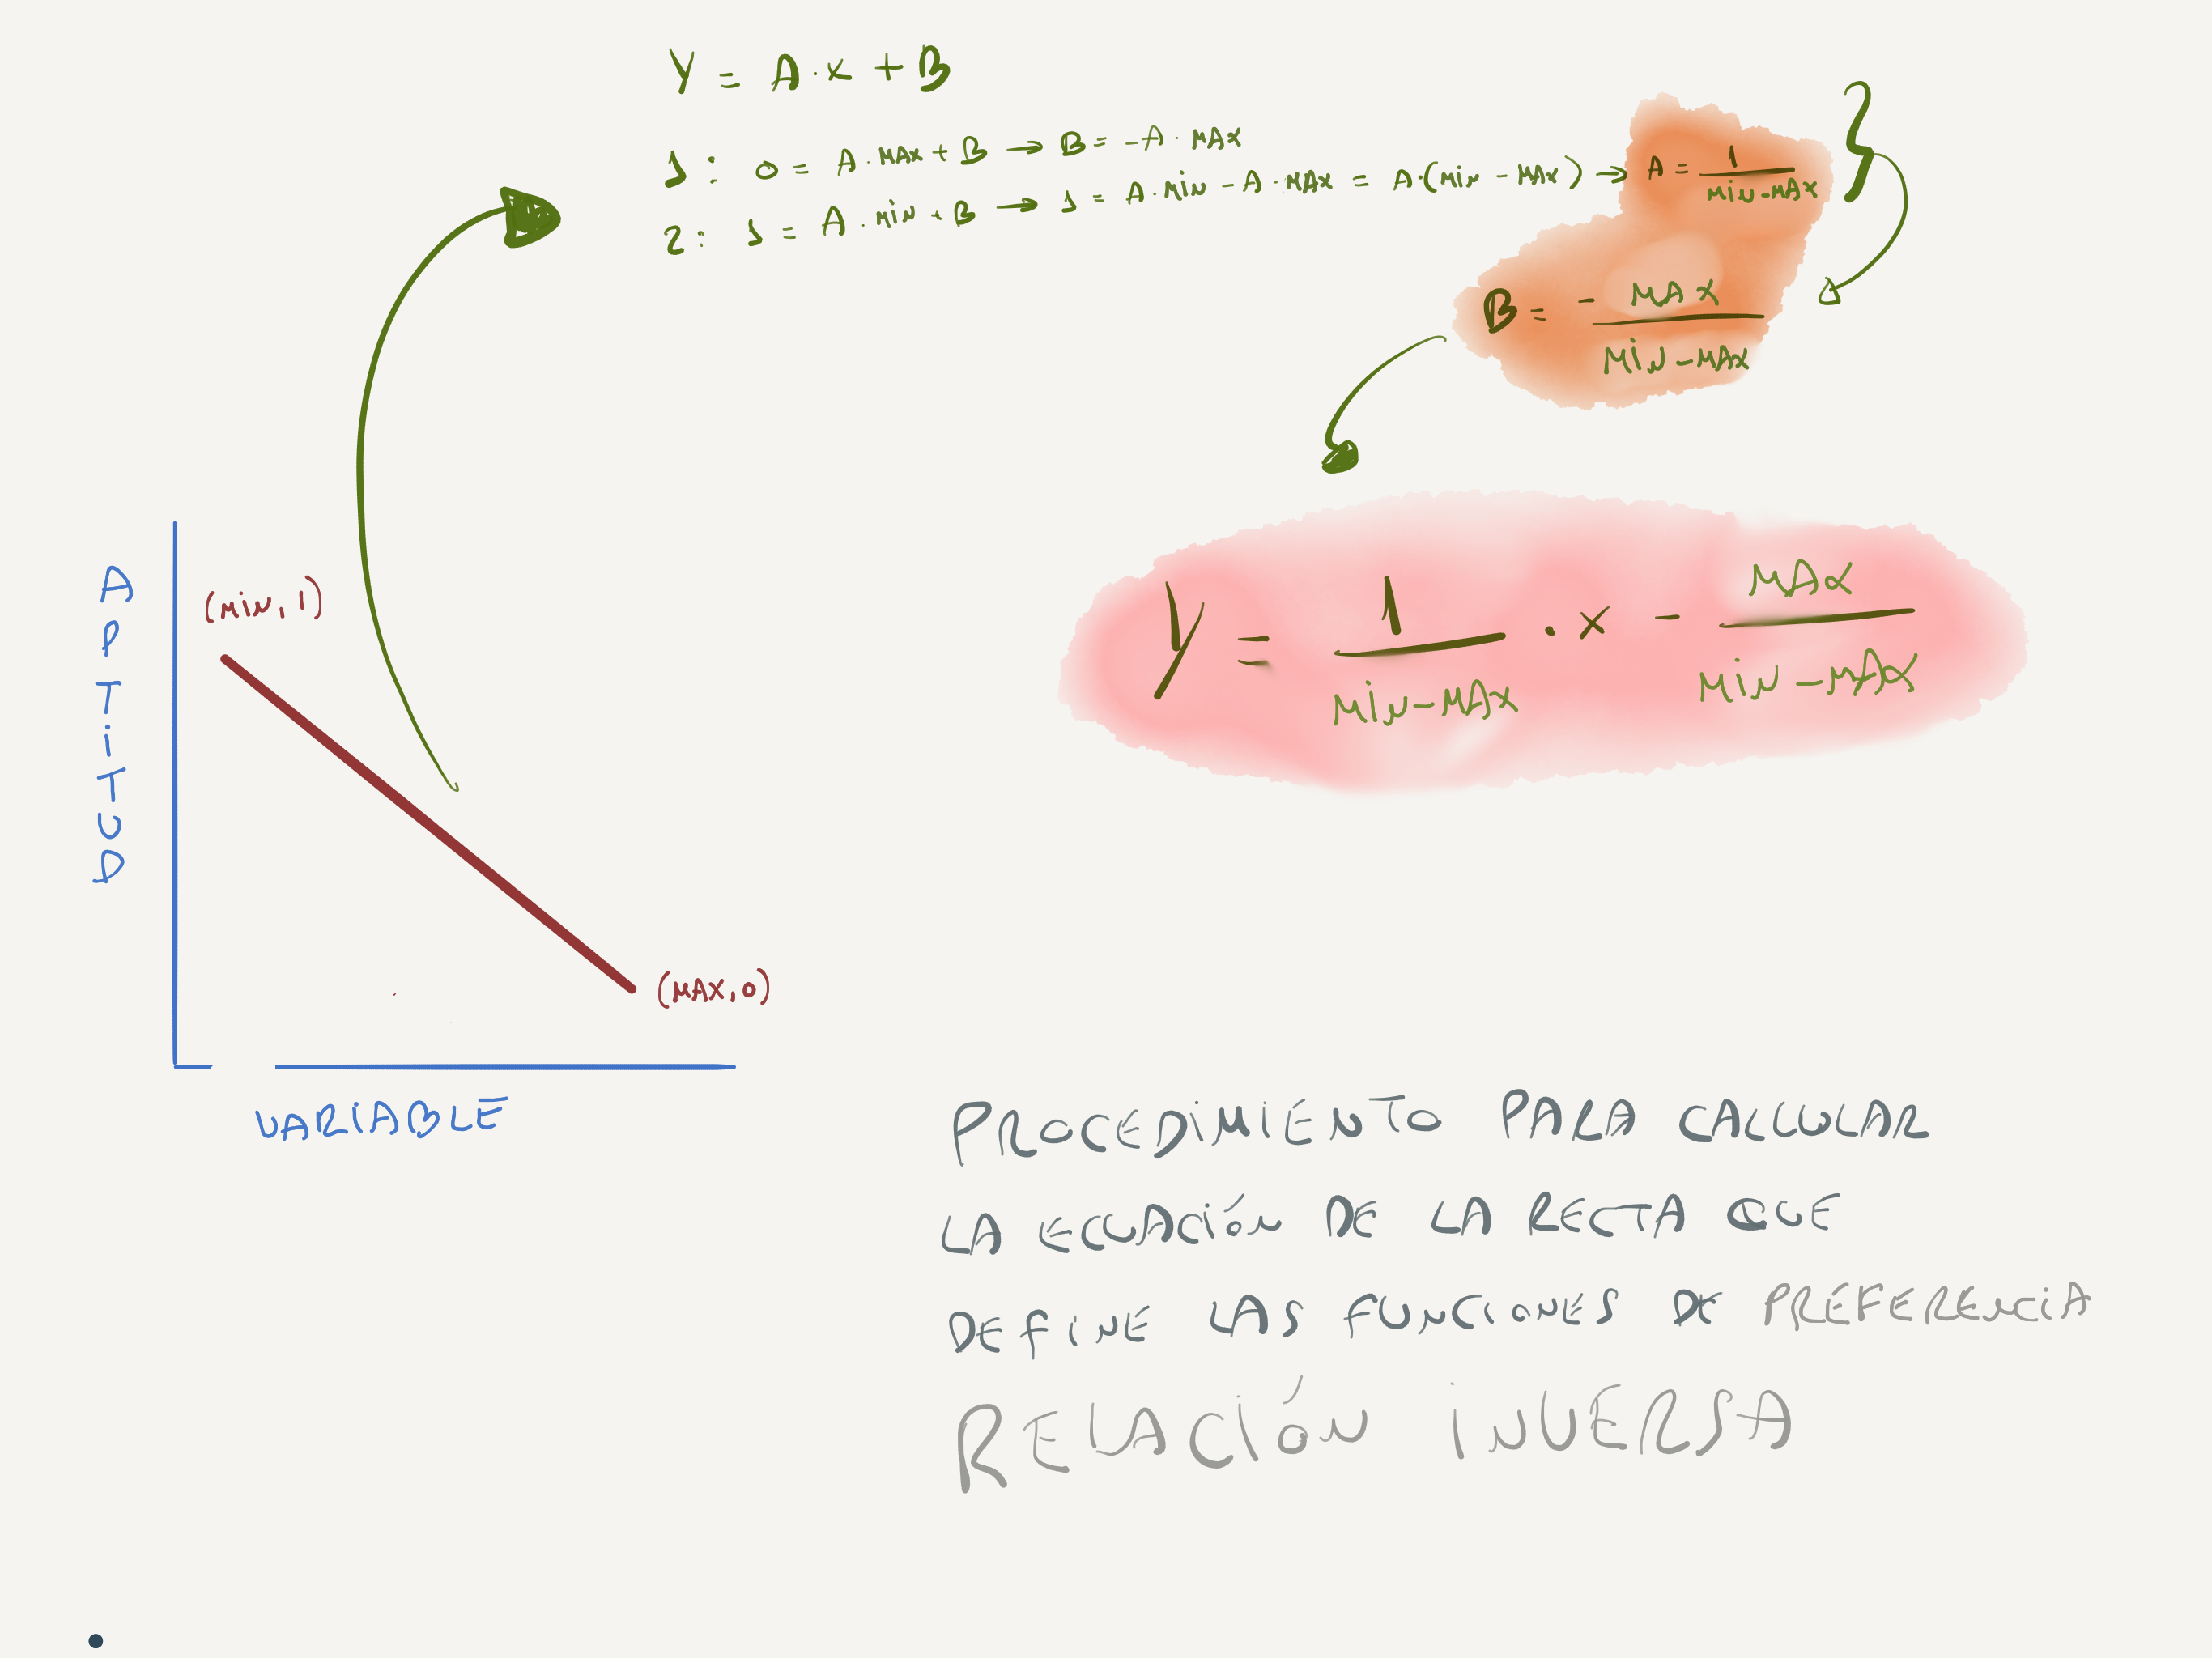 Y = A·x + B
1: 0 = A·MAX + B → B = -A·MAX
2: 1 = A·MiN + B → 1 = A·MiN - A·MAX = A·(MiN - MAX) → A = 1 / MiN-MAX
B = - MAX / MiN-MAX
Y = 1 / MiN-MAX · x - MAX / MiN-MAX
APTiTUD
(MiN, 1)
(MAX, 0)
VARiABLE
PROCEDiMIENTO PARA CALCULAR
LA ECUACiÓN DE LA RECTA QUE
DEFINE LAS FUNCIONES DE PREFERENCiA
RELACiÓN iNVERSA